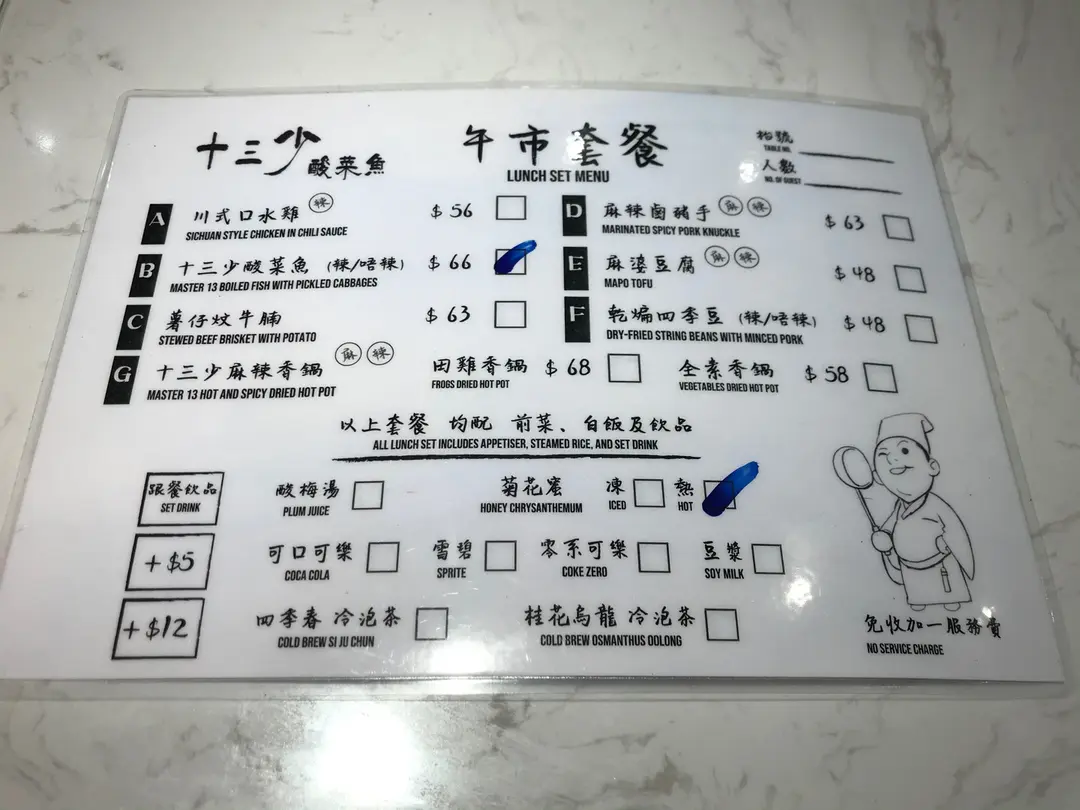 十三少 酸菜魚
午市套餐
LUNCH SET MENU
枱號
TABLE NO.
人數
NO. OF GUEST
A 川式口水雞 辣 $56
SICHUAN STYLE CHICKEN IN CHILI SAUCE
B 十三少酸菜魚 (辣/唔辣) $66
MASTER 13 BOILED FISH WITH PICKLED CABBAGES
C 薯仔炆牛腩 $63
STEWED BEEF BRISKET WITH POTATO
D 麻辣鹵豬手 麻 辣 $63
MARINATED SPICY PORK KNUCKLE
E 麻婆豆腐 麻 辣 $48
MAPO TOFU
F 乾煸四季豆 (辣/唔辣) $48
DRY-FRIED STRING BEANS WITH MINCED PORK
G 十三少麻辣香鍋 麻 辣
MASTER 13 HOT AND SPICY DRIED HOT POT
田雞香鍋 $68
FROGS DRIED HOT POT
全素香鍋 $58
VEGETABLES DRIED HOT POT
以上套餐 均配 前菜、白飯及飲品
ALL LUNCH SET INCLUDES APPETISER, STEAMED RICE, AND SET DRINK
跟餐飲品
SET DRINK
酸梅湯
PLUM JUICE
菊花蜜
HONEY CHRYSANTHEMUM
凍
ICED
熱
HOT
+$5
可口可樂
COCA COLA
雪碧
SPRITE
零系可樂
COKE ZERO
豆漿
SOY MILK
+$12
四季春 冷泡茶
COLD BREW SI JU CHUN
桂花烏龍 冷泡茶
COLD BREW OSMANTHUS OOLONG
免收加一服務費
NO SERVICE CHARGE